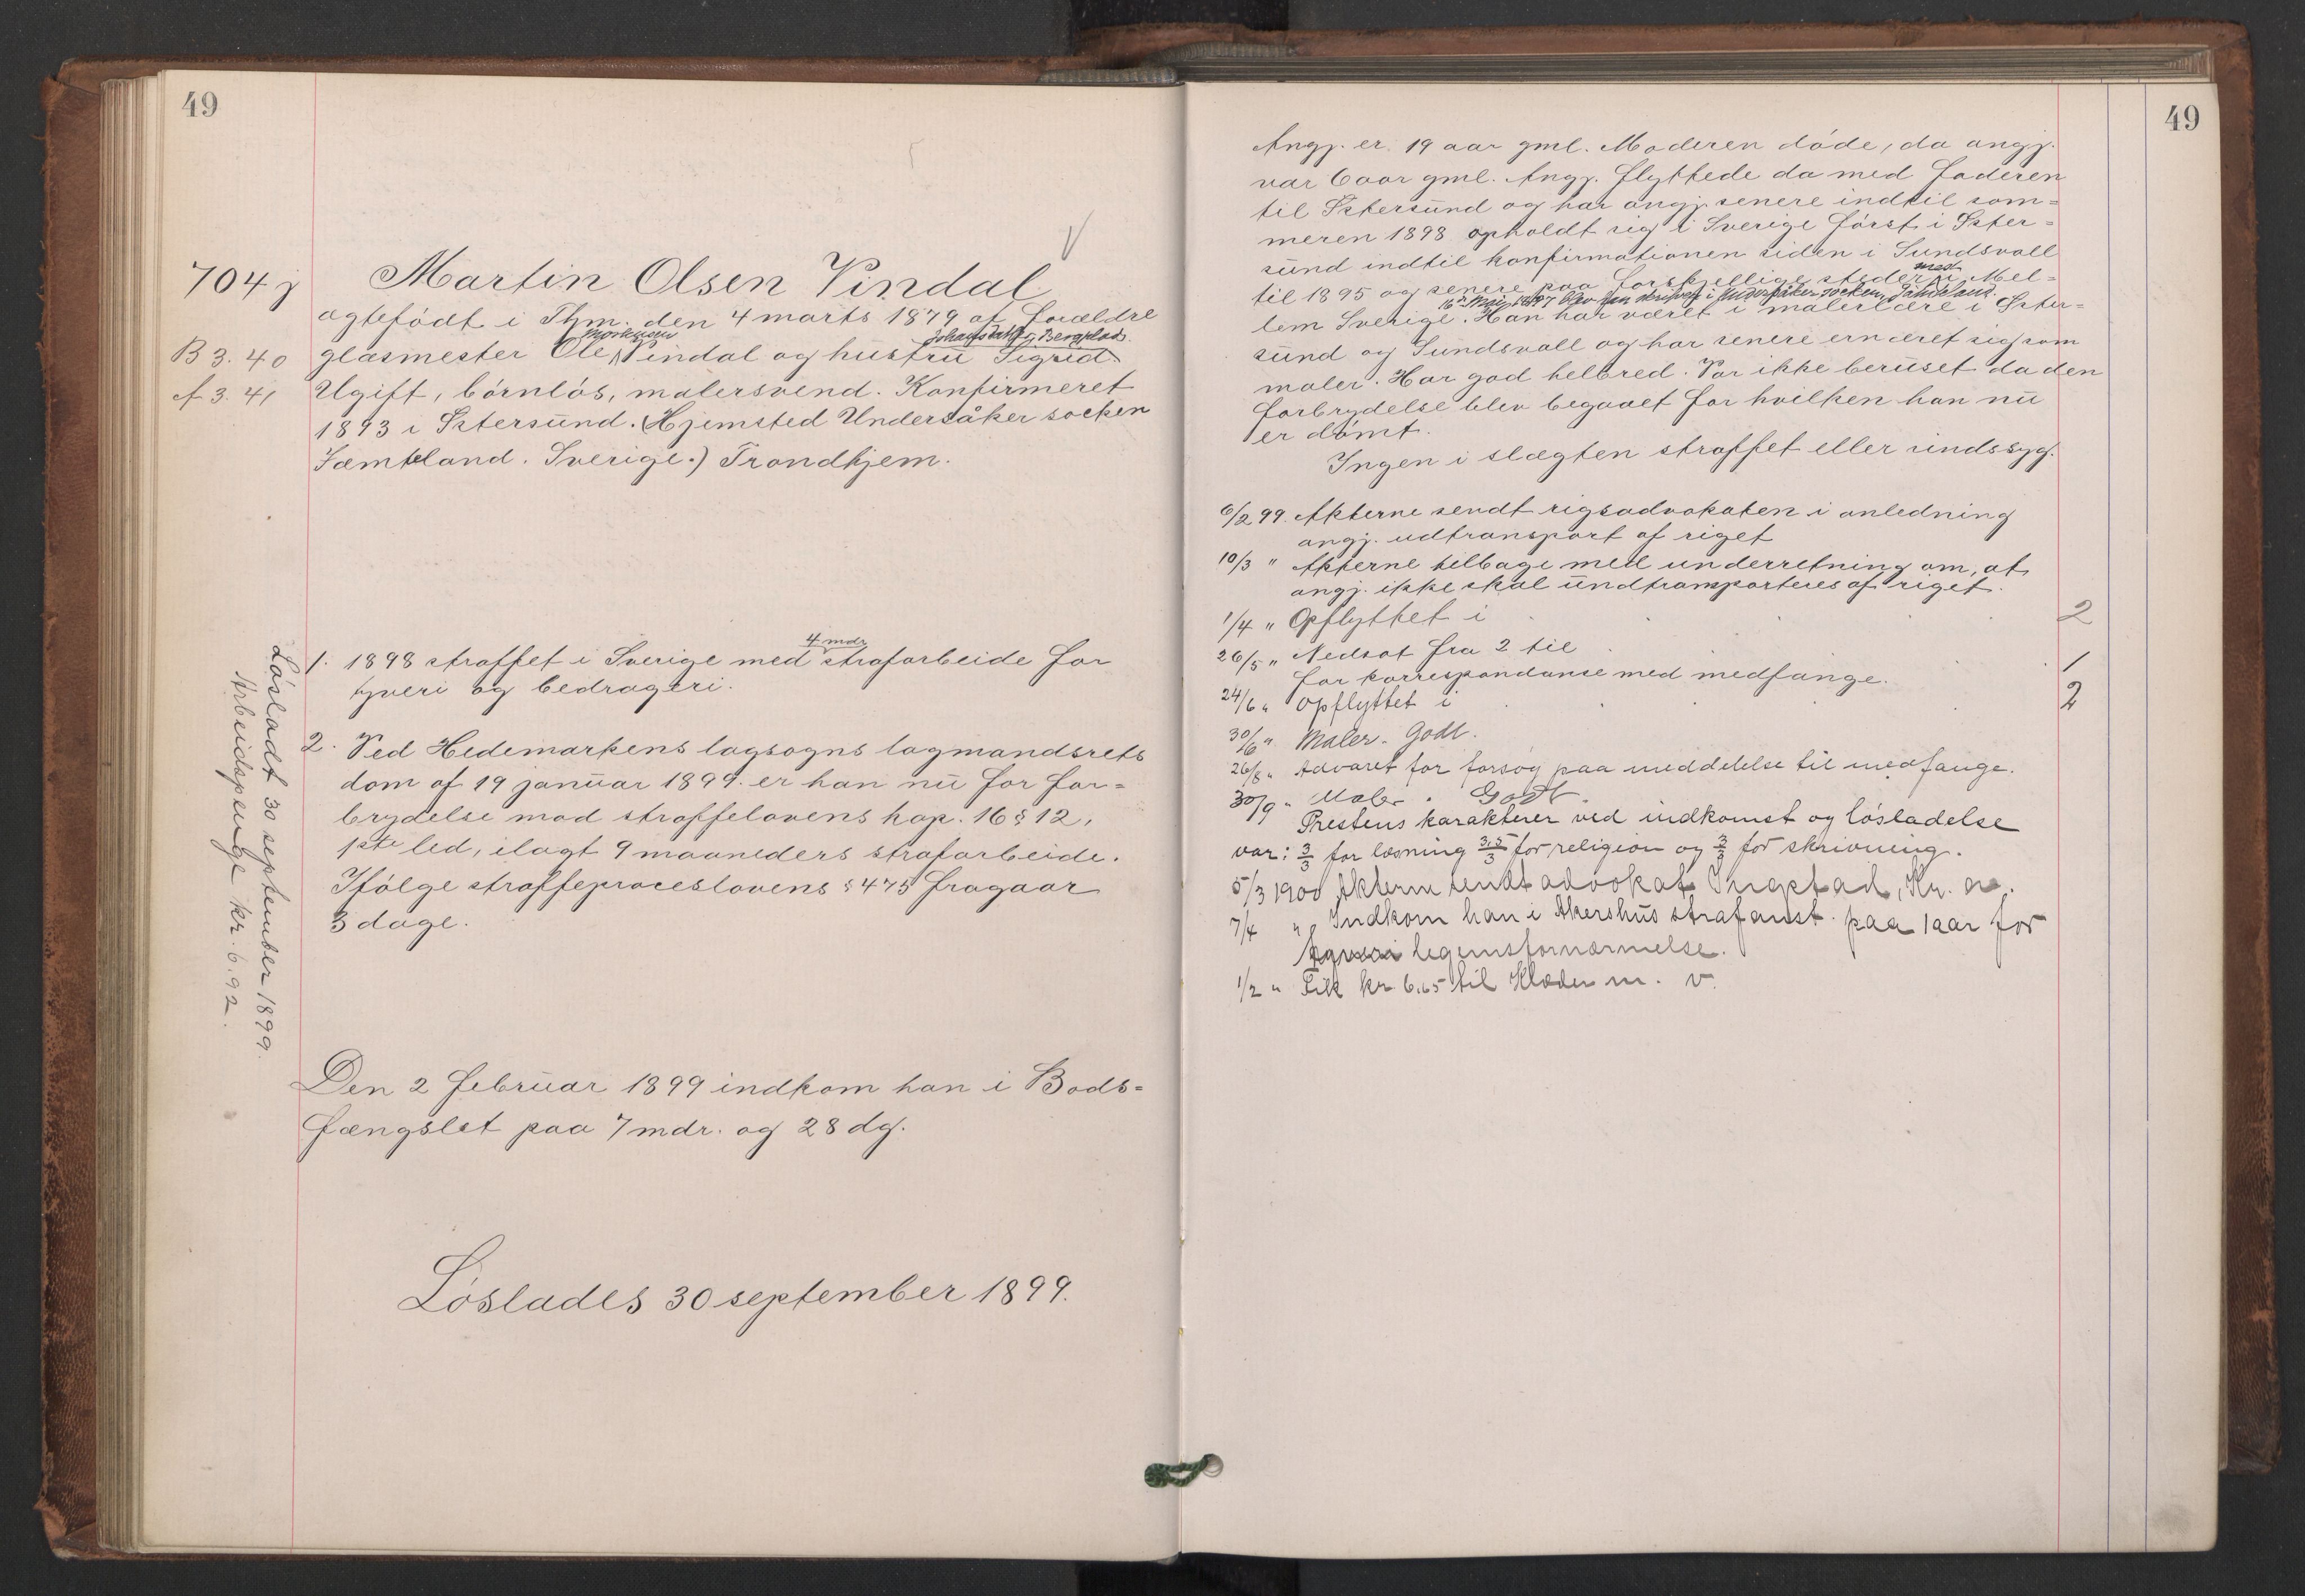 49
704 j
Martin Olsen Vindal
ægtefödt i Thm. den 4 marts 1879 af forældre
Johansdatter Bergplads.
B 3. 40
glasmester Ole Vindal og hustru Sigrid.
A 3. 41
Ugift, börnlös, malersvend. Konfirmeret
1893 i Östersund. (Hjemsted Undersåker socken
Jæmteland. Sverige.) Trondhjem.
1. 1898 straffet i Sverige med 4 mdr strafarbeide for
tyveri og bedrageri.
2. Ved Hedemarkens lagsogns lagmandsrets
dom af 19 januar 1899 er han nu for for=
brydelse mod straffelovens kap. 16 § 12,
1ste led, ilagt 9 maaneders strafarbeide.
Ifölge straffeproceslovens § 475 fragaar
3 dage.
Lösladt 30 september 1899.
Arbeidspenge kr. 6.92.
Den 2 februar 1899 indkom han i Bods=
fængslet paa 7 mdr. og 28 dg.
Löslades 30 september 1899.
49
Angj. er 19 aar gml. Moderen döde, da angj.
var 6 aar gml. Angj. flyttede da med faderen
til Östersund og har angj. senere indtil som=
meren 1898 opholdt sig i Sverige först i Öster=
sund indtil konfirmationen siden i Sundsvall
til 1895 og senere paa forskjellige steder i Mel=
med
16de Maj 1897 blev han skreven i Undersåker socken, Jämtland.
lem Sverige. Han har været i malerlære i Öster=
sund og Sundsvall og har senere ernæret sig som
maler. Har god helbred. Var ikke beruset da den
forbrydelse blev begaaet for hvilken han nu
er dömt.
Ingen i slægten straffet eller sindssyg.
6/2 99. Akterne sendt rigsadvokaten i anledning
angj. udtransport af riget
10/3 " Akterne tilbage med underretning om, at
angj. ikke skal undtransporteres af riget.
1/4 " Opflyttet i . . . . 2
26/5 " Nedsat fra 2 til . . 1
for korrespondanse med medfange.
24/6 " Opflyttet i . . . . 2
30/6 " Maler. Godt.
26/8 " Advaret for forsög paa meddelelse til medfange.
30/9 " Maler. Godt.
Prestens karakterer ved indkomst og lösladelse
var: 3/3 for læsning 3.5/3 for religion og 3/3 for skrivning.
5/3 1900 Akterne sendt advokat Ingstad, Kr. a.
7/4 " Indkom han i Akershus strafanst. paa 1 aar for
legemsfornærmelse.
1/2 " Fik kr 6.65 til Klæder m. v.